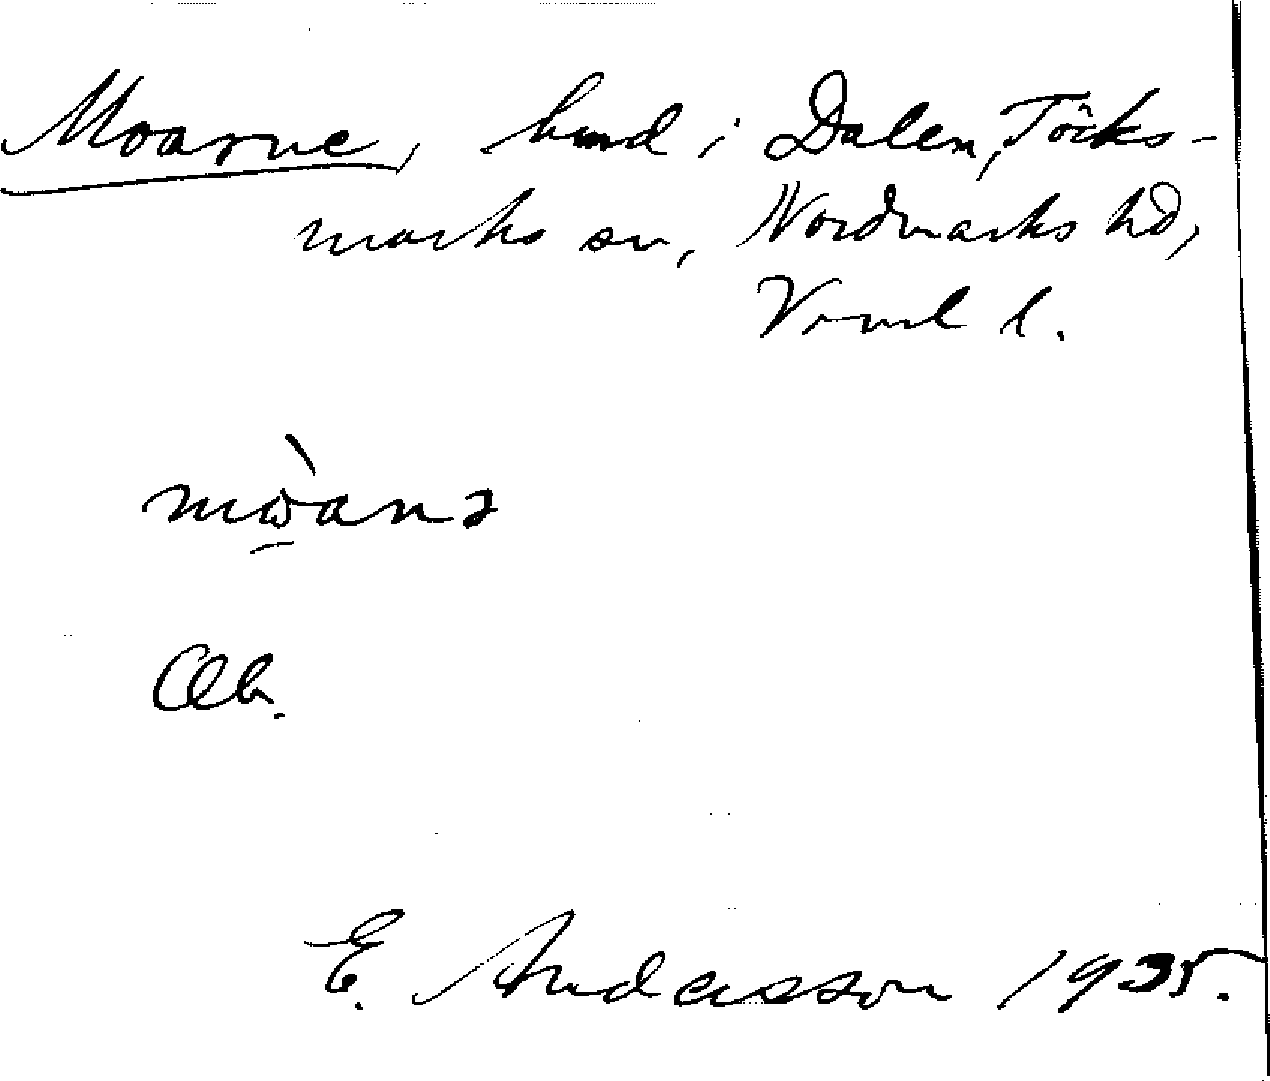 Moarne, hmd i Dalen, Töcks-
marks sn, Nordmarks hd,
Vrml l.
mὼanə
Åb.
E. Andersson 1935.